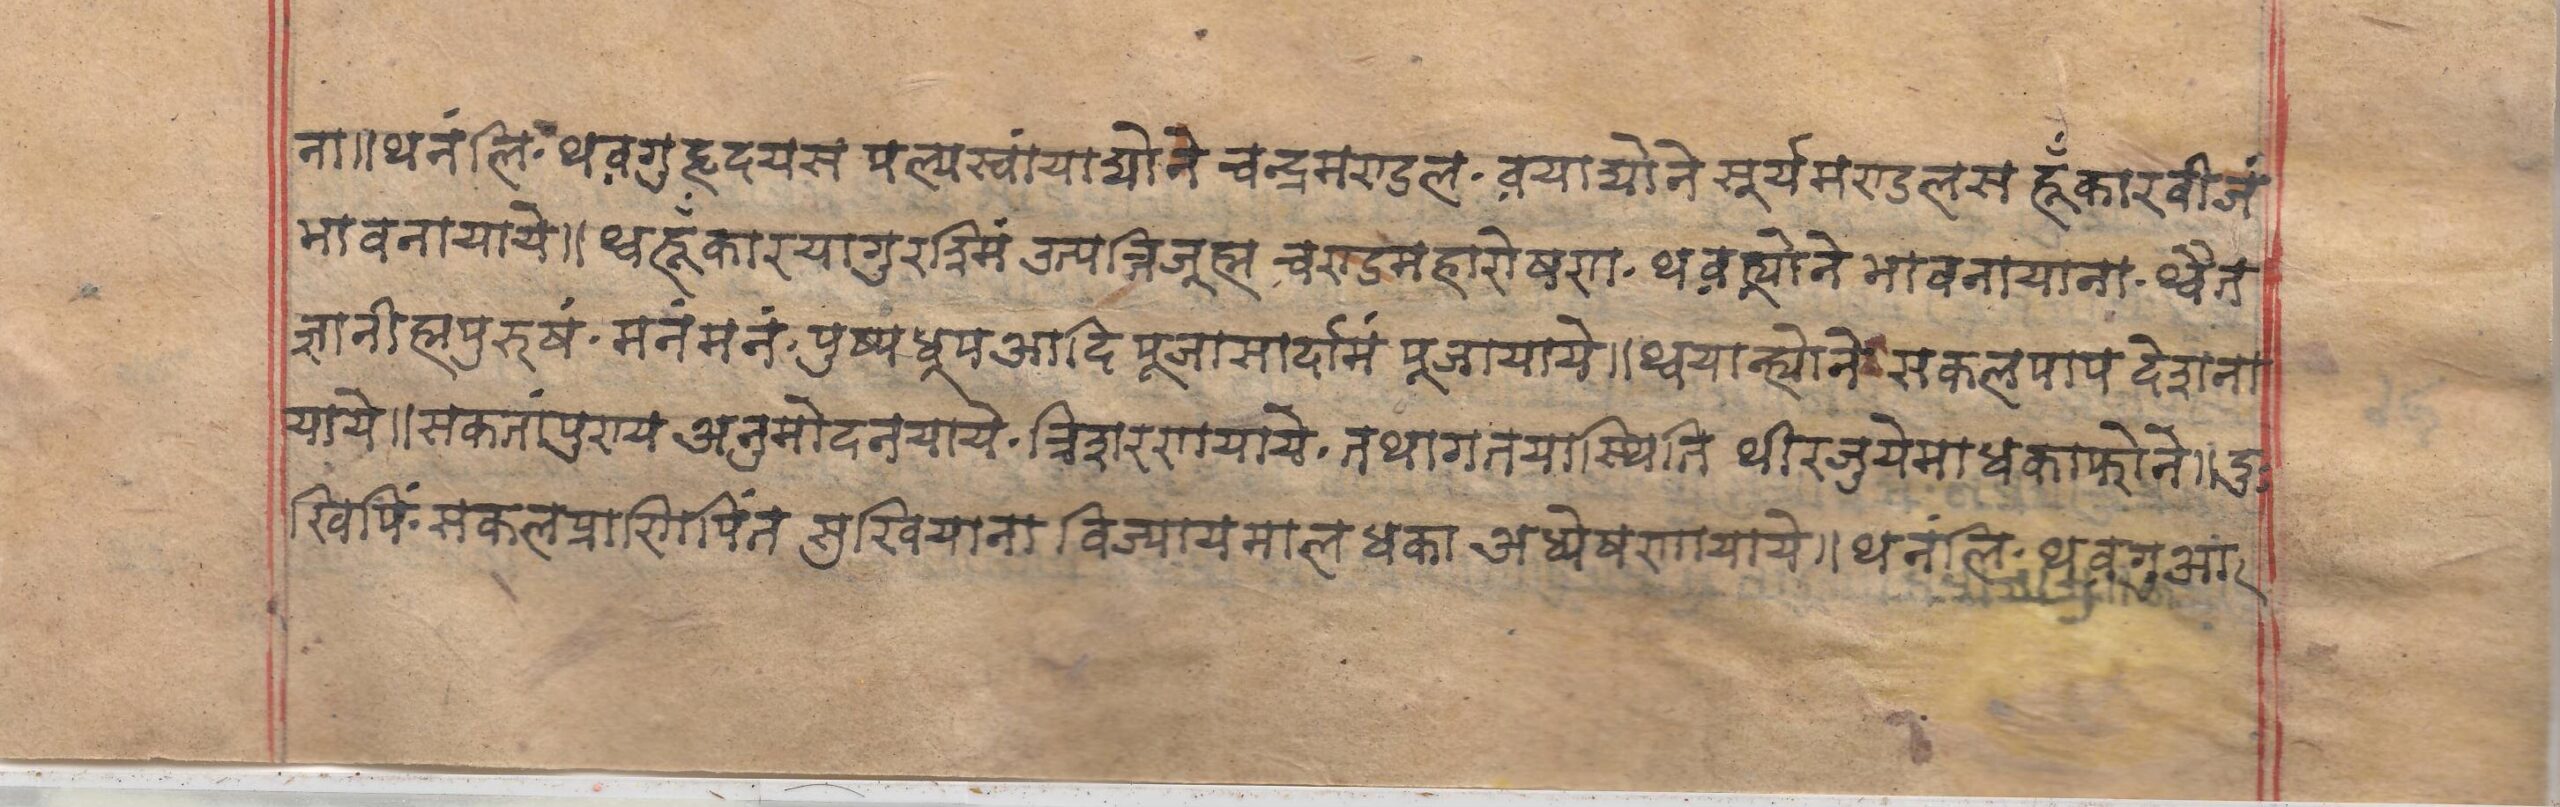 ना॥थनंलि· थव़गु हृदयस पल्यस्वांयाद्योने चन्द्रमण्डल· व़याद्योने सूर्यमण्डलस हूँकारवीजं
भावनायाये॥ थ्वहूँकारयागु रश्मिं उत्पत्तिजूह्म चण्डमहारोषण· थव़ह्योने भावनायाना· थ्वैत
ज्ञानीह्मपुरुषं· मनंमनं· पुष्पधूपआदि पूजामार्दामं पूजायाये॥ थ्वयान्ह्योने सकलपाप देशना
याये॥ सकतांपुण्य अनुमोदनयाये· त्रिशरणयाये· तथागतयास्थिति थीरजुयेमाधकाफोने॥ दुः
खिपिं· सकलप्राणिपिंत सुखियाना विज्यायमाल धका अध्येषणायाये॥ थनंलि· थव़गुआ